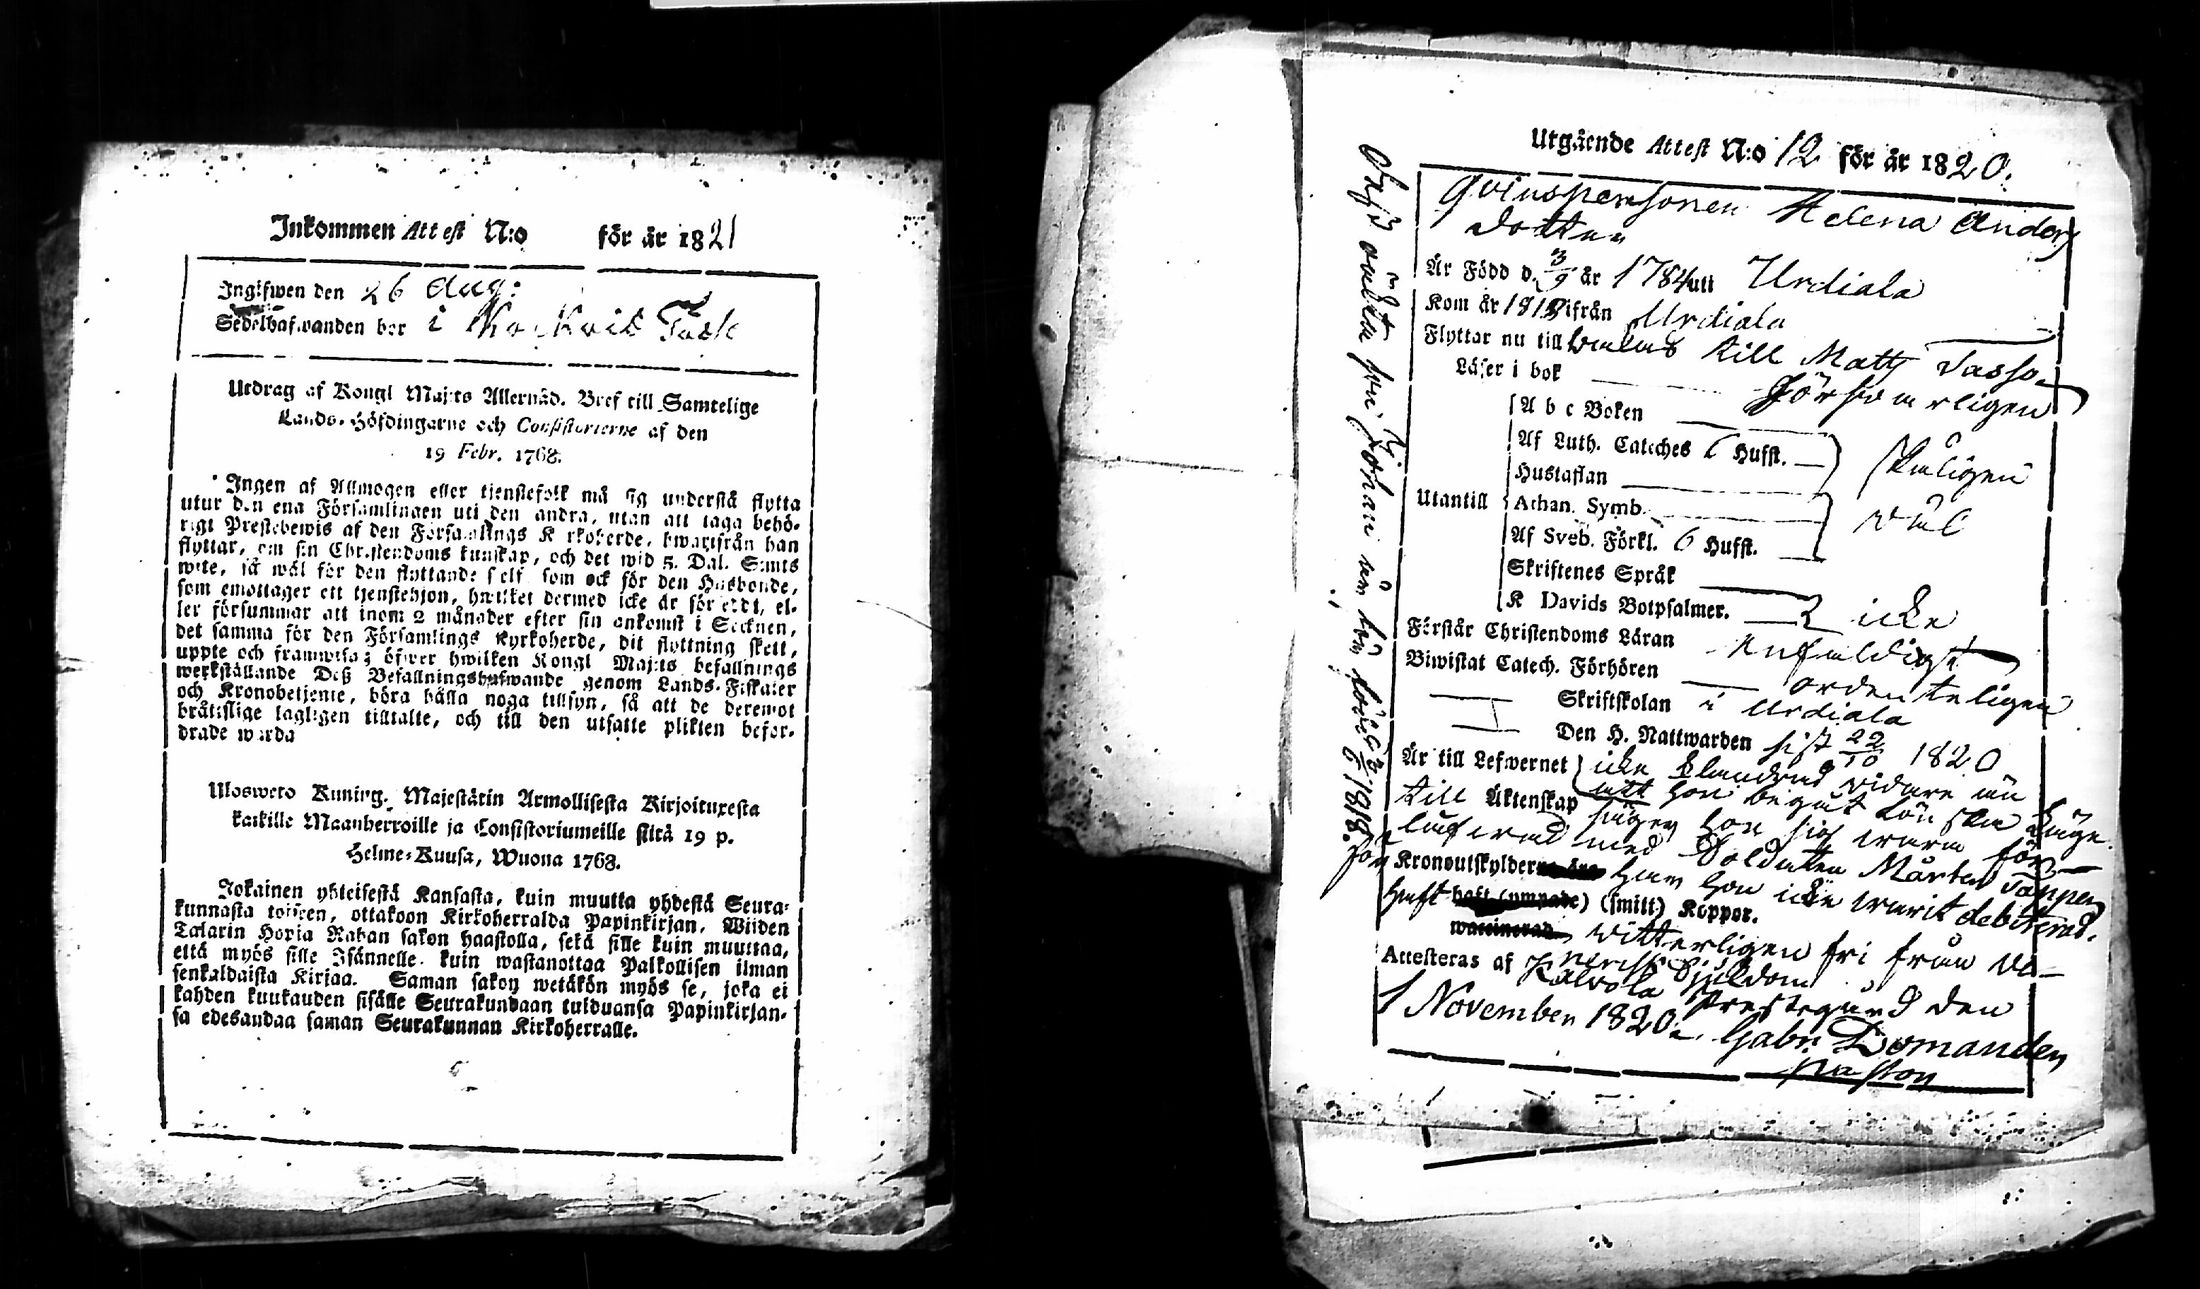 Inkommen Attest N:o för år 1821
Ingifwen den 26 Aug:
Sedelhafwanden bor i
Utdrag af Kongl Maj:ts Allernåd. Bref till Samtelige
Lands-Höfdingarne och Consistorierne af den
19 Febr. 1768.
Ingen af Allmogen eller tjenstefolk må sig understå flytta
utur den ena Församlingen uti den andra, utan att taga behö-
rigt Prestebewis af den Församlings Kyrkoherde, hwarifrån han
flyttar, om sin Christendoms kunskap, och det wid 5. Dal. Smts
wite, så wäl för den flyttande self som ock för den Husbonde,
som emottager ett tjenstehjon, hwilket dermed icke är försedt, el-
ler försummar att inom 2 månader efter sin ankomst i Socknen,
det samma för den Församlings Kyrkoherde, dit flyttning skett,
uppte och framwisa; öfwer hwilken Kongl Maj:ts befallnings
werkställande Deß Befallningshafwande genom Lands-Fiskaler
och Kronobetjente, böra hålla noga tillsyn, så att de deremot
bråttslige lagligen tilltalte, och till den utsatte plikten befor-
drade warda
Uloswero Kuning. Majestätin Armollisesta Kirjoituxesta
kaikille Maanherroille ja Consistoriumeille siitä 19 p.
Helme-Kuusa, Wuona 1768.
Jokainen yhteisestä Kansasta, kuin muutta yhdestä Seura-
kunnasta toiseen, ottakoon Kirkoherralda Papinkirjan, Wiiden
Talarin Hopia Rahan sakon haastolla, sekä sille kuin muuttaa,
että myös sille Isännelle kuin wastanottaa Palkollisen ilman
senkaldaista Kirjaa. Saman sakon wetäkön myös se, joka ei
kahden kuukauden sisälle Seurakundaan tulduansa Papinkirjan-
sa edesandaa saman Seurakunnan Kirkoherralle.
Utgående Attest N:o 12 för år 1820.
Qvinspersonen Helena Anders
dotter
Är Född d. 3/9 år 1784 uti Urdiala
Kom år 1818 ifrån Urdiala
Flyttar nu till till Matts
Läser i bok försvarligen
A b c Boken
Af Luth. Cateches 6 Hufst.
Hustaflan
Utantill Athan. Symb.
Af Sveb. Förkl. 6 Hufst.
Skriftenes Språk
K Davids Botpsalmer. icke
Förstår Christendoms Läran enfaldigt
Biwistat Catech. Förhören ordenteligen
Skriftskolan i Urdiala
Den H. Nattwarden sist 22/10 1820
Är till Lefwernet icke klandrad vidare än
att hon begått
till Äktenskap säger hon sig wara för-
lofwad med Soldaten Mårten
För Kronoutskylder har hon icke warit debiterad.
Haft (smitt) Koppor.
witterligen fri från ve-
nerisk Sjukdom
Attesteras af Kalvola Prestegård den
1 November 1820. Gabr
Pastor
Johan är född 1818.